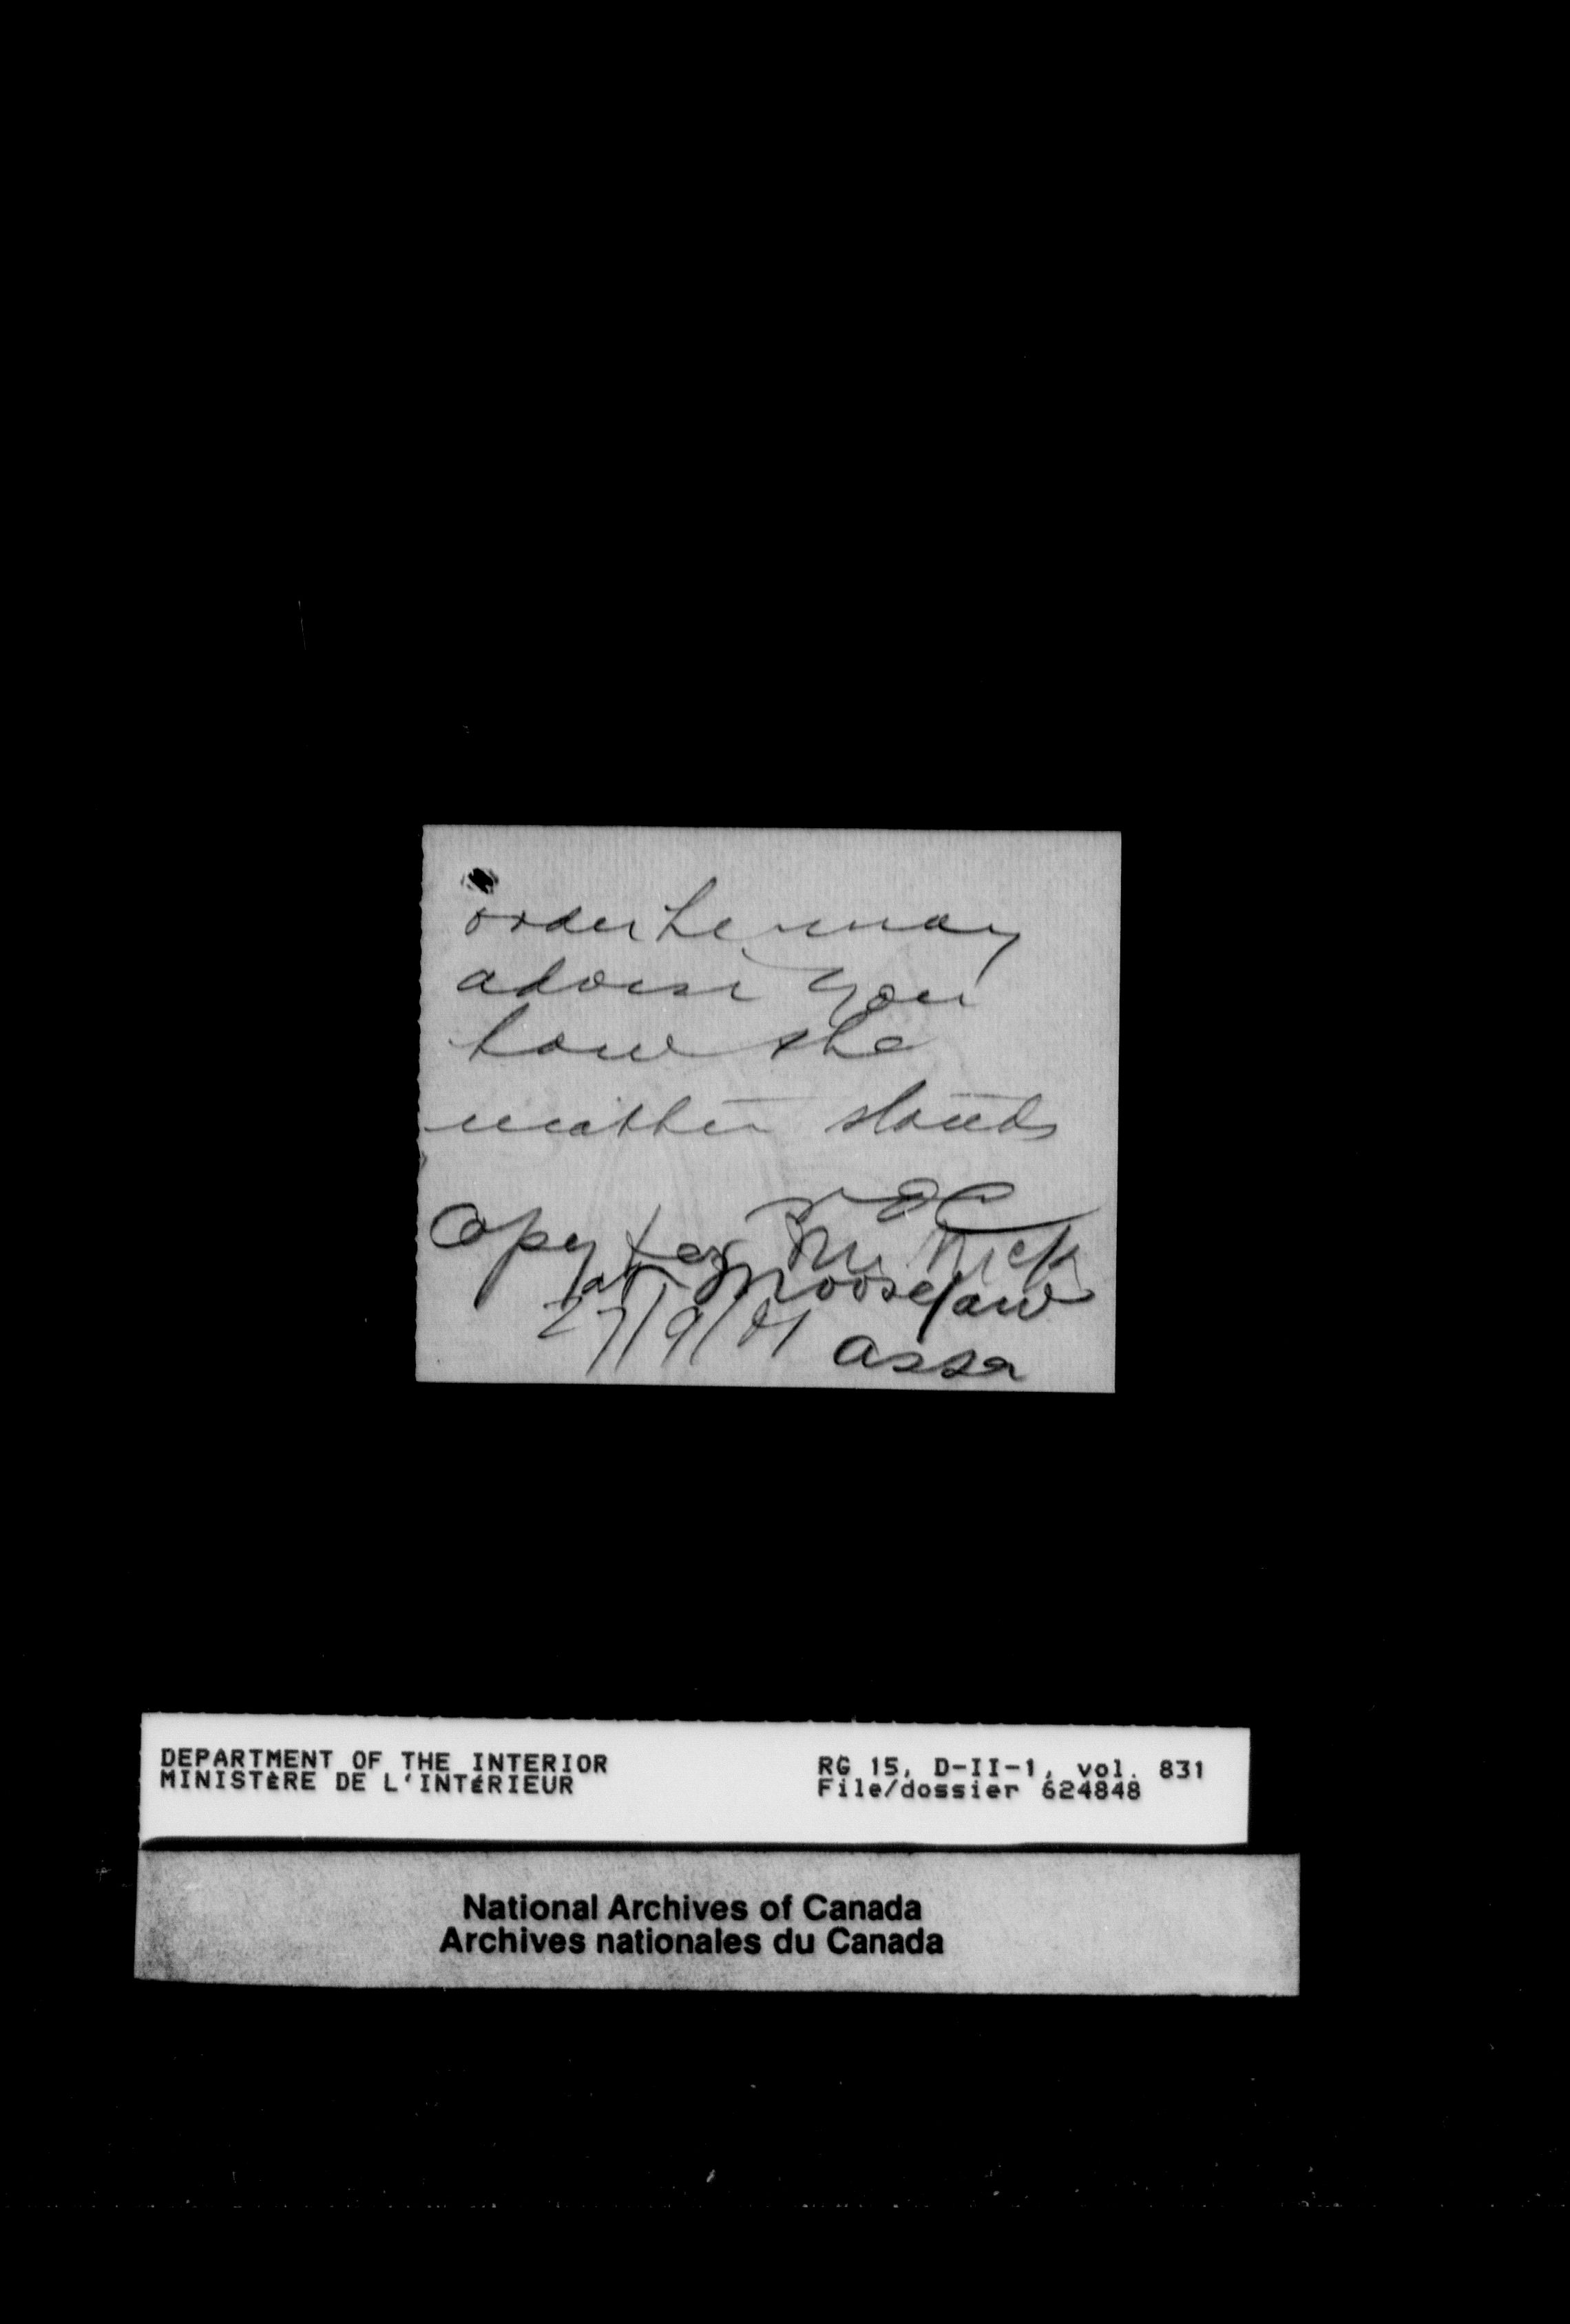 order he may
advise you
how the
matter stands
Copy to Mr
at Moosejaw
27/9/01 Assa
DEPARTMENT OF THE INTERIOR
MINISTÈRE DE L'INTÉRIEUR
RG 15, D-II-1, vol. 831
File/dossier 624848
National Archives of Canada
Archives nationales du Canada